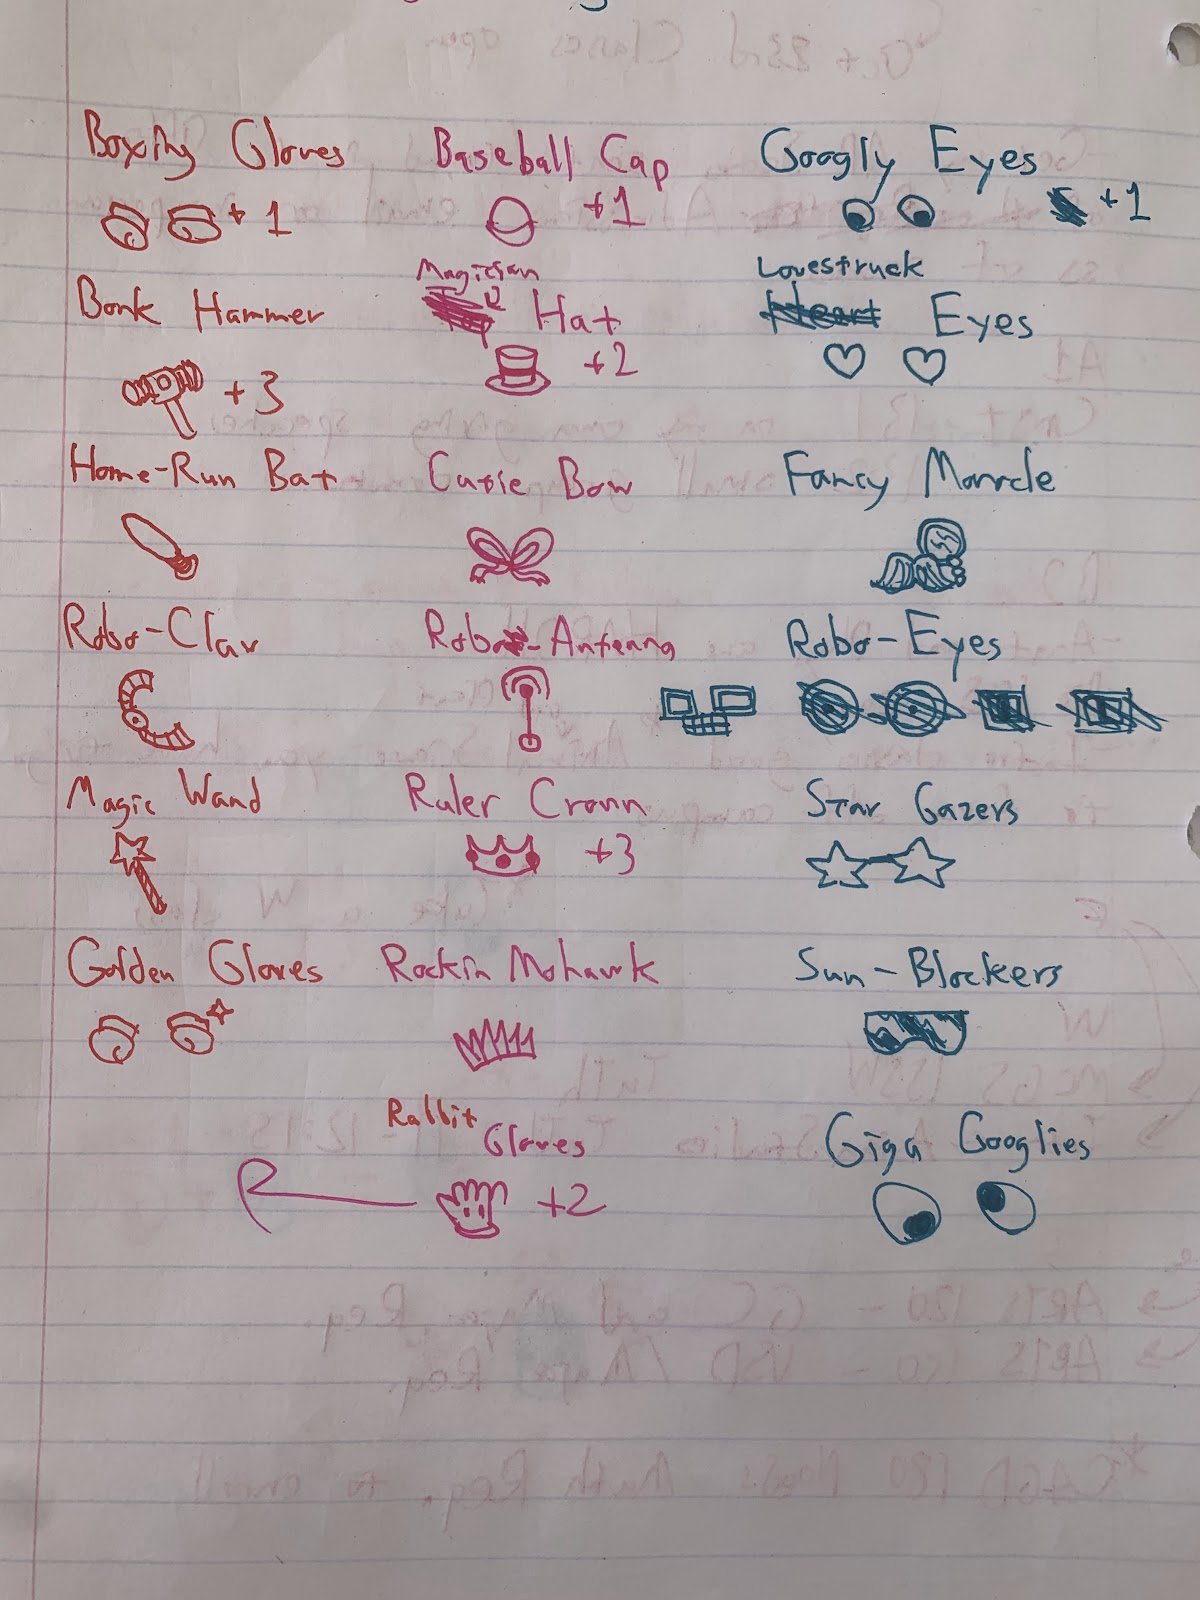 Boxing Gloves Baseball Cap Googly Eyes
+ 1 +1 +1
Magician Lovestruck
Bonk Hammer Hat Heart Eyes
+ 3 +2
Home-Run Bat Cutie Bow Fancy Monocle
Robo-Claw Robo-Antenna Robo-Eyes
Magic Wand Ruler Crown Star Gazers
+3
Golden Gloves Rockin Mohawk Sun-Blockers
Rabbit Gloves Giga Googlies
R +2